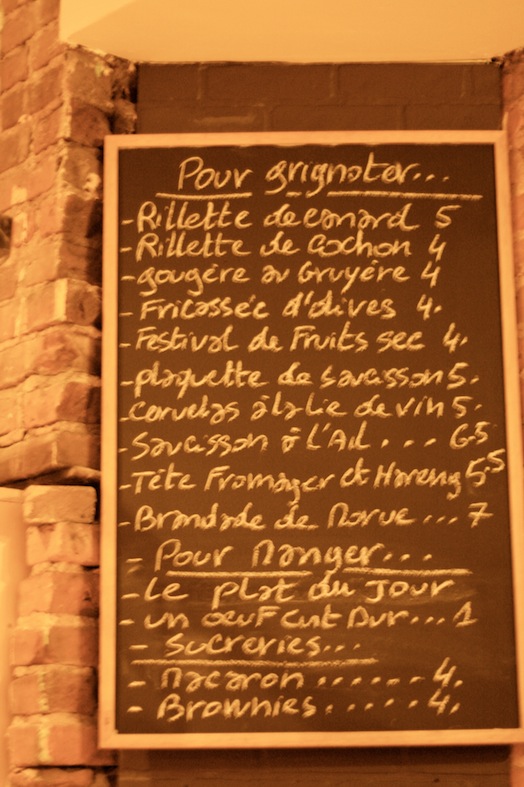 Pour grignoter...
- Rillette de canard 5
- Rillette de cochon 4
- gougère au Gruyère 4
- Fricassée d'olives 4.
- Festival de Fruits sec 4.
- plaquette de saucisson 5.
- Cervelas à la lie de vin 5.
- Saucisson à l'Ail . . . 6.5
- Tête Fromager et Hareng 5.5
- Brandade de Morue ... 7
- Pour Manger...
- Le plat du Jour
- un œuf Cuit Dur... 1
- Sucreries...
- Macaron ...... 4.
- Brownies..... 4.